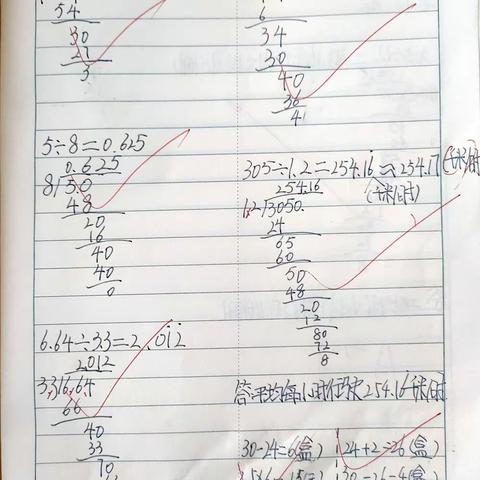 54
30
27
3
5÷8=0.625
0.625
8/5.0
48
20
16
40
40
0
6.64÷3.3=2.0i2̇
2.012
3.3/6.6.4
66
40
33
70
6
34
30
40
36
4
305÷1.2=254.16̇≈254.17(千米/时)
254.16 (千米/时)
1.2/3050.
24
65
60
50
48
20
12
80
72
8
答:平均每小时行驶254.16千米/时
30-24=6(盒) 24+2=26(盒)
30-26=4(盒)